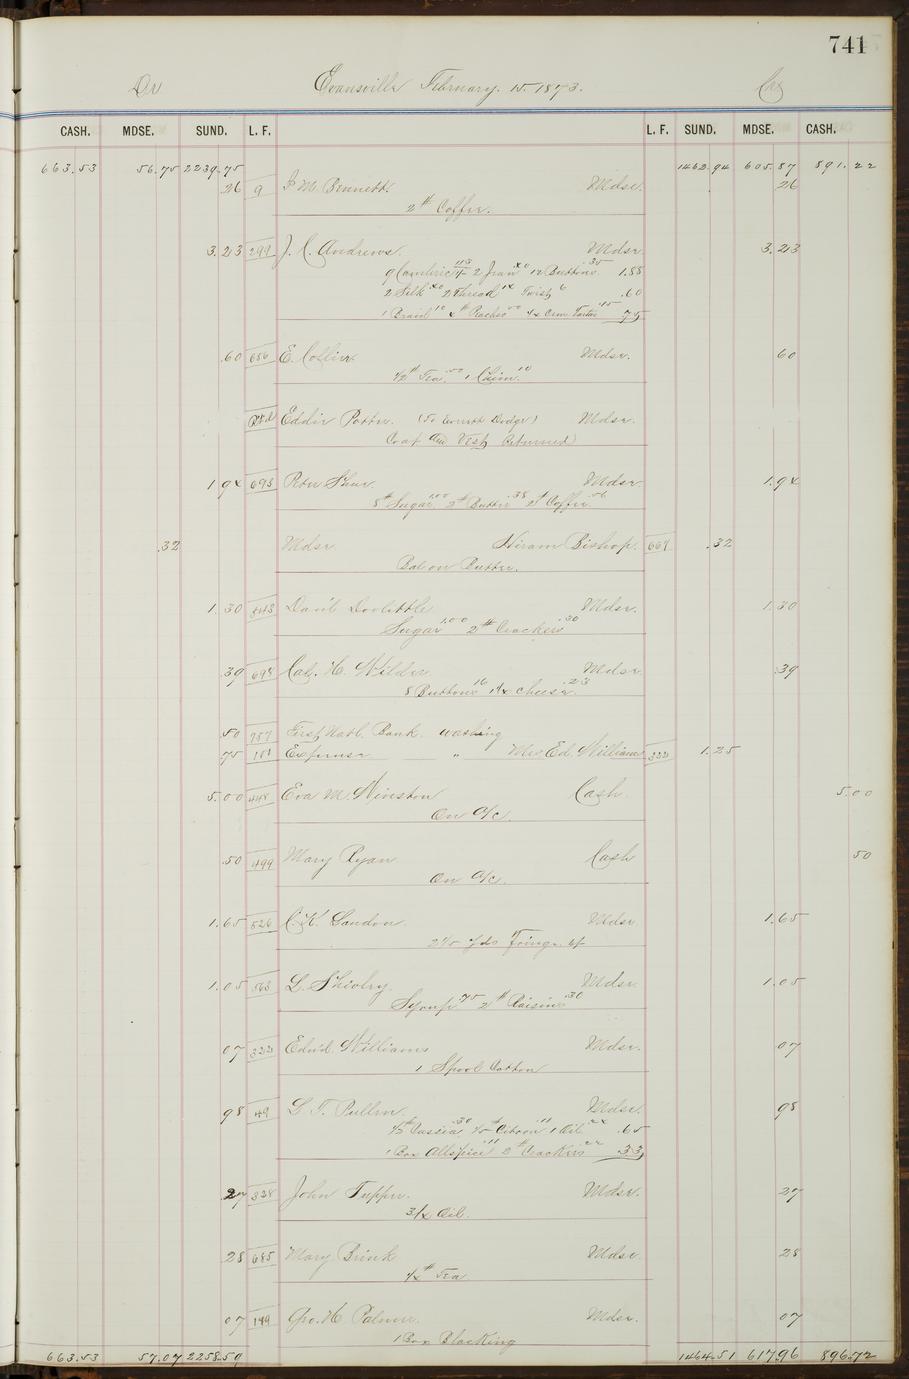 741
Dr Evansville February. 15. 1873. Cr
CASH. MDSE. SUND. L. F. L. F. SUND. MDSE. CASH.
663.53 56.75 2239.75 1462.94 605.87 891.22
26 9 F M Bennett. Mdse. 26
2# Coffee.
3.23 299 J. C. Andrews. Mdse. 3.23
9 Cambric 2 Jean 12 Buttons 35 1.88
2 Silk 2 Thread Twist 6 .60
1 Braid 10 Peaches 50 Crm Tartar 15 75
.60 686 E. Collier. Mdse. 60
1/2# Tea .50 1 Chim. 10
Eddie Potter. (To Everett Dodge) Mdse.
Coat and Vest Returned
1.94 693 Mdse. 1.94
8# Sugar 1.00 2# Butter .38 2# Coffee .56
.32 Mdse. Hiram Bishop. 667 .32
Bal on Butter.
1.30 843 David Doolittle Mdse. 1.30
Sugar 1.00 2# Crackers .30
39 698 H. Wilder Mdse. .39
8 Buttons 16 Cheese .23
50 757 First Natl. Bank. washing
75 101 Expense " Mrs. Ed. Williams 322 1.25
5.00 448 Eva M. Winston Cash. 5.00
On a/c.
.50 499 Mary Ryan Cash 50
On a/c.
1.65 526 C. K. Landon. Mdse. 1.65
yds Fringe
1.05 563 L. Shively. Mdse. 1.05
Syrup .75 2# Raisins .30
07 322 Edw'd. Williams Mdse. 07
1 Spool Cotton
98 49 L. T. Pullen. Mdse. 98
Cassia .30 Citron 11 1 Oil .65
1 Box Allspice 11 2# Crackers 22 .33
27 328 John Tupper. Mdse. 27
3/4 Oil.
28 685 Mary Brink Mdse. 28
1/4# Tea
07 149 Geo. H. Palmer. Mdse. 07
1 Box Blacking
663.53 57.07 2258.59 1464.51 617.96 896.72